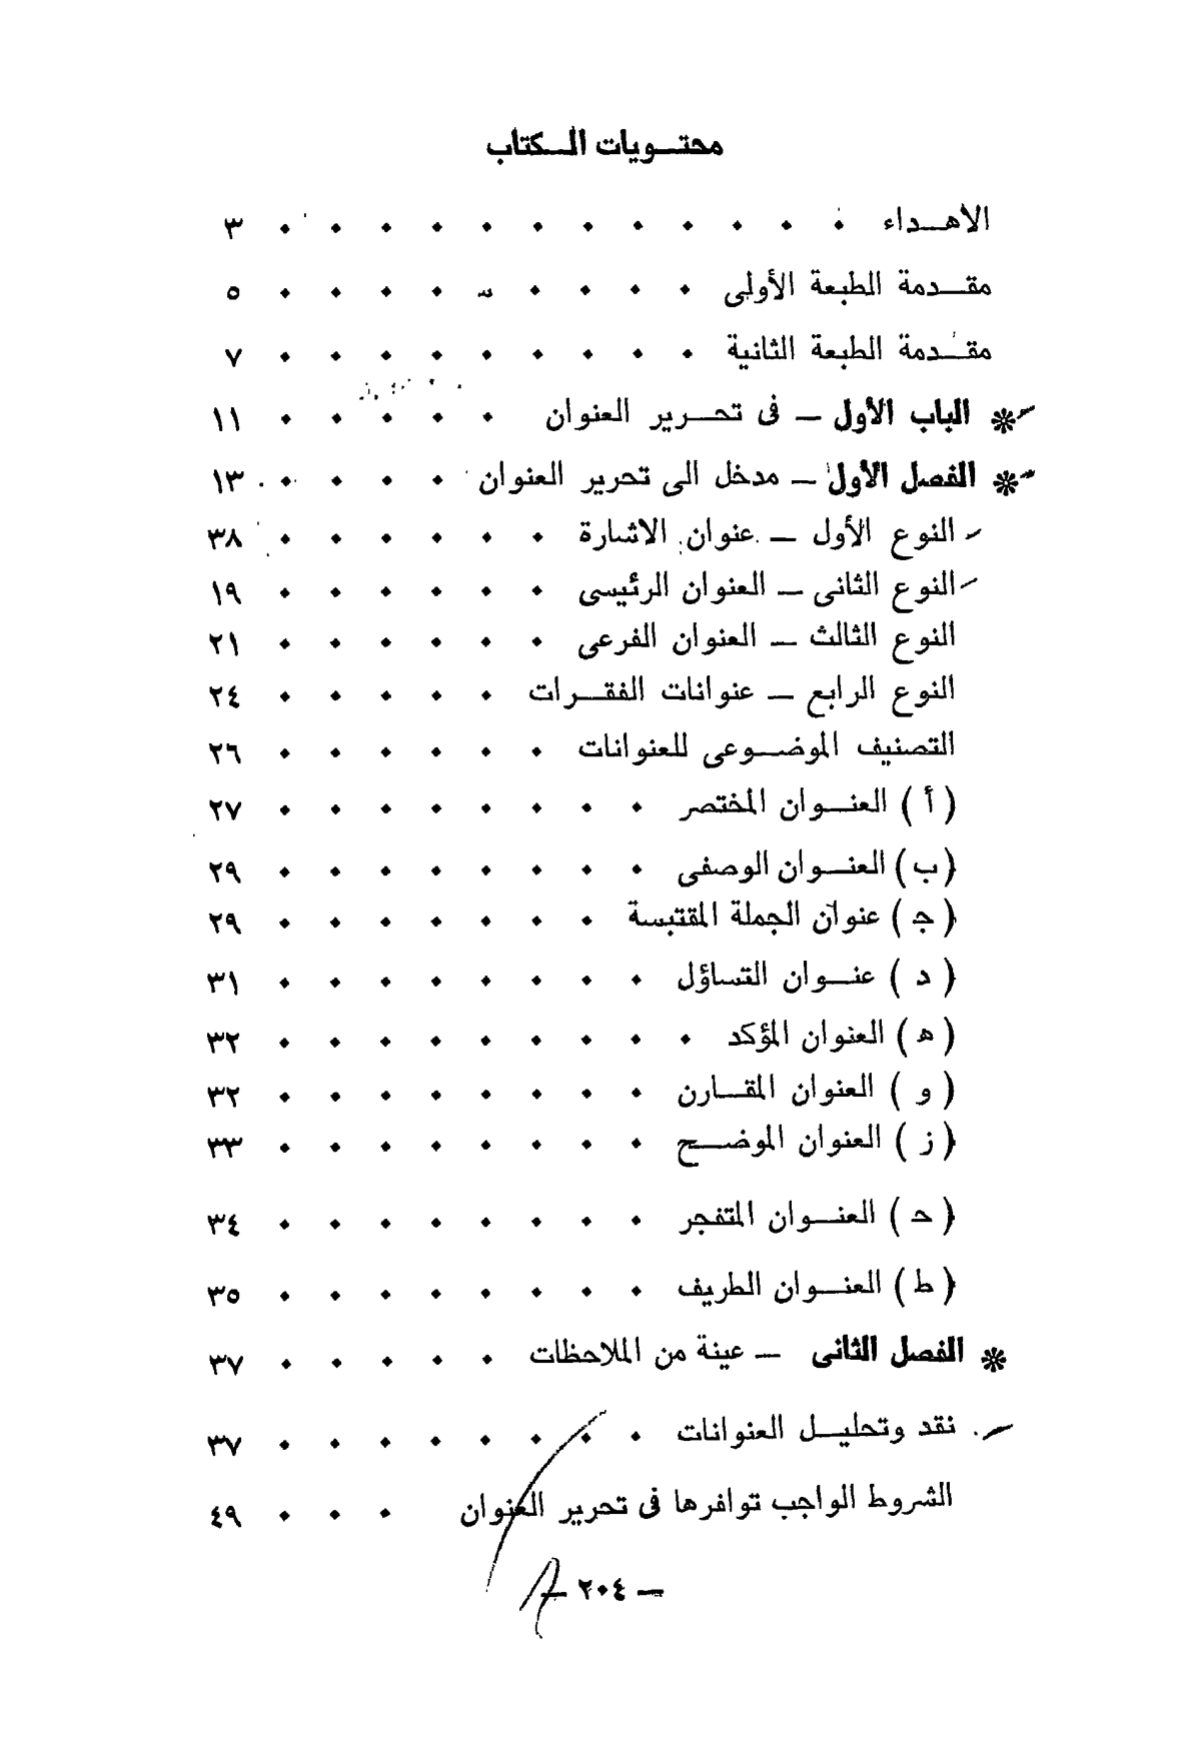 محتويات الكتاب
الاهداء . . . . . . . . . . . . ٣
مقدمة الطبعة الأولى . . . . . . . . . ٥
مقدمة الطبعة الثانية . . . . . . . . . ٧
* الباب الأول — فى تحرير العنوان . . . . . ١١
* الفصل الأول — مدخل الى تحرير العنوان . . . . ١٣
النوع الأول — عنوان الاشارة . . . . . . ٣٨
النوع الثانى — العنوان الرئيسى . . . . . . ١٩
النوع الثالث — العنوان الفرعى . . . . . . ٢١
النوع الرابع — عنوانات الفقرات . . . . . ٢٤
التصنيف الموضوعى للعنوانات . . . . . . ٢٦
( أ ) العنوان المختصر . . . . . . . . ٢٧
( ب ) العنوان الوصفى . . . . . . . . ٢٩
( ج ) عنوان الجملة المقتبسة . . . . . . . ٢٩
( د ) عنوان التساؤل . . . . . . . . ٣١
( ه ) العنوان المؤكد . . . . . . . . . ٣٢
( و ) العنوان المقارن . . . . . . . . ٣٢
( ز ) العنوان الموضح . . . . . . . . ٣٣
( ح ) العنوان المتفجر . . . . . . . . ٣٤
( ط ) العنوان الطريف . . . . . . . . ٣٥
* الفصل الثانى — عينة من الملاحظات . . . . . ٣٧
نقد وتحليل العنوانات . . . . . . . . ٣٧
الشروط الواجب توافرها فى تحرير العنوان . . . ٤٩
— ٢٠٤ —